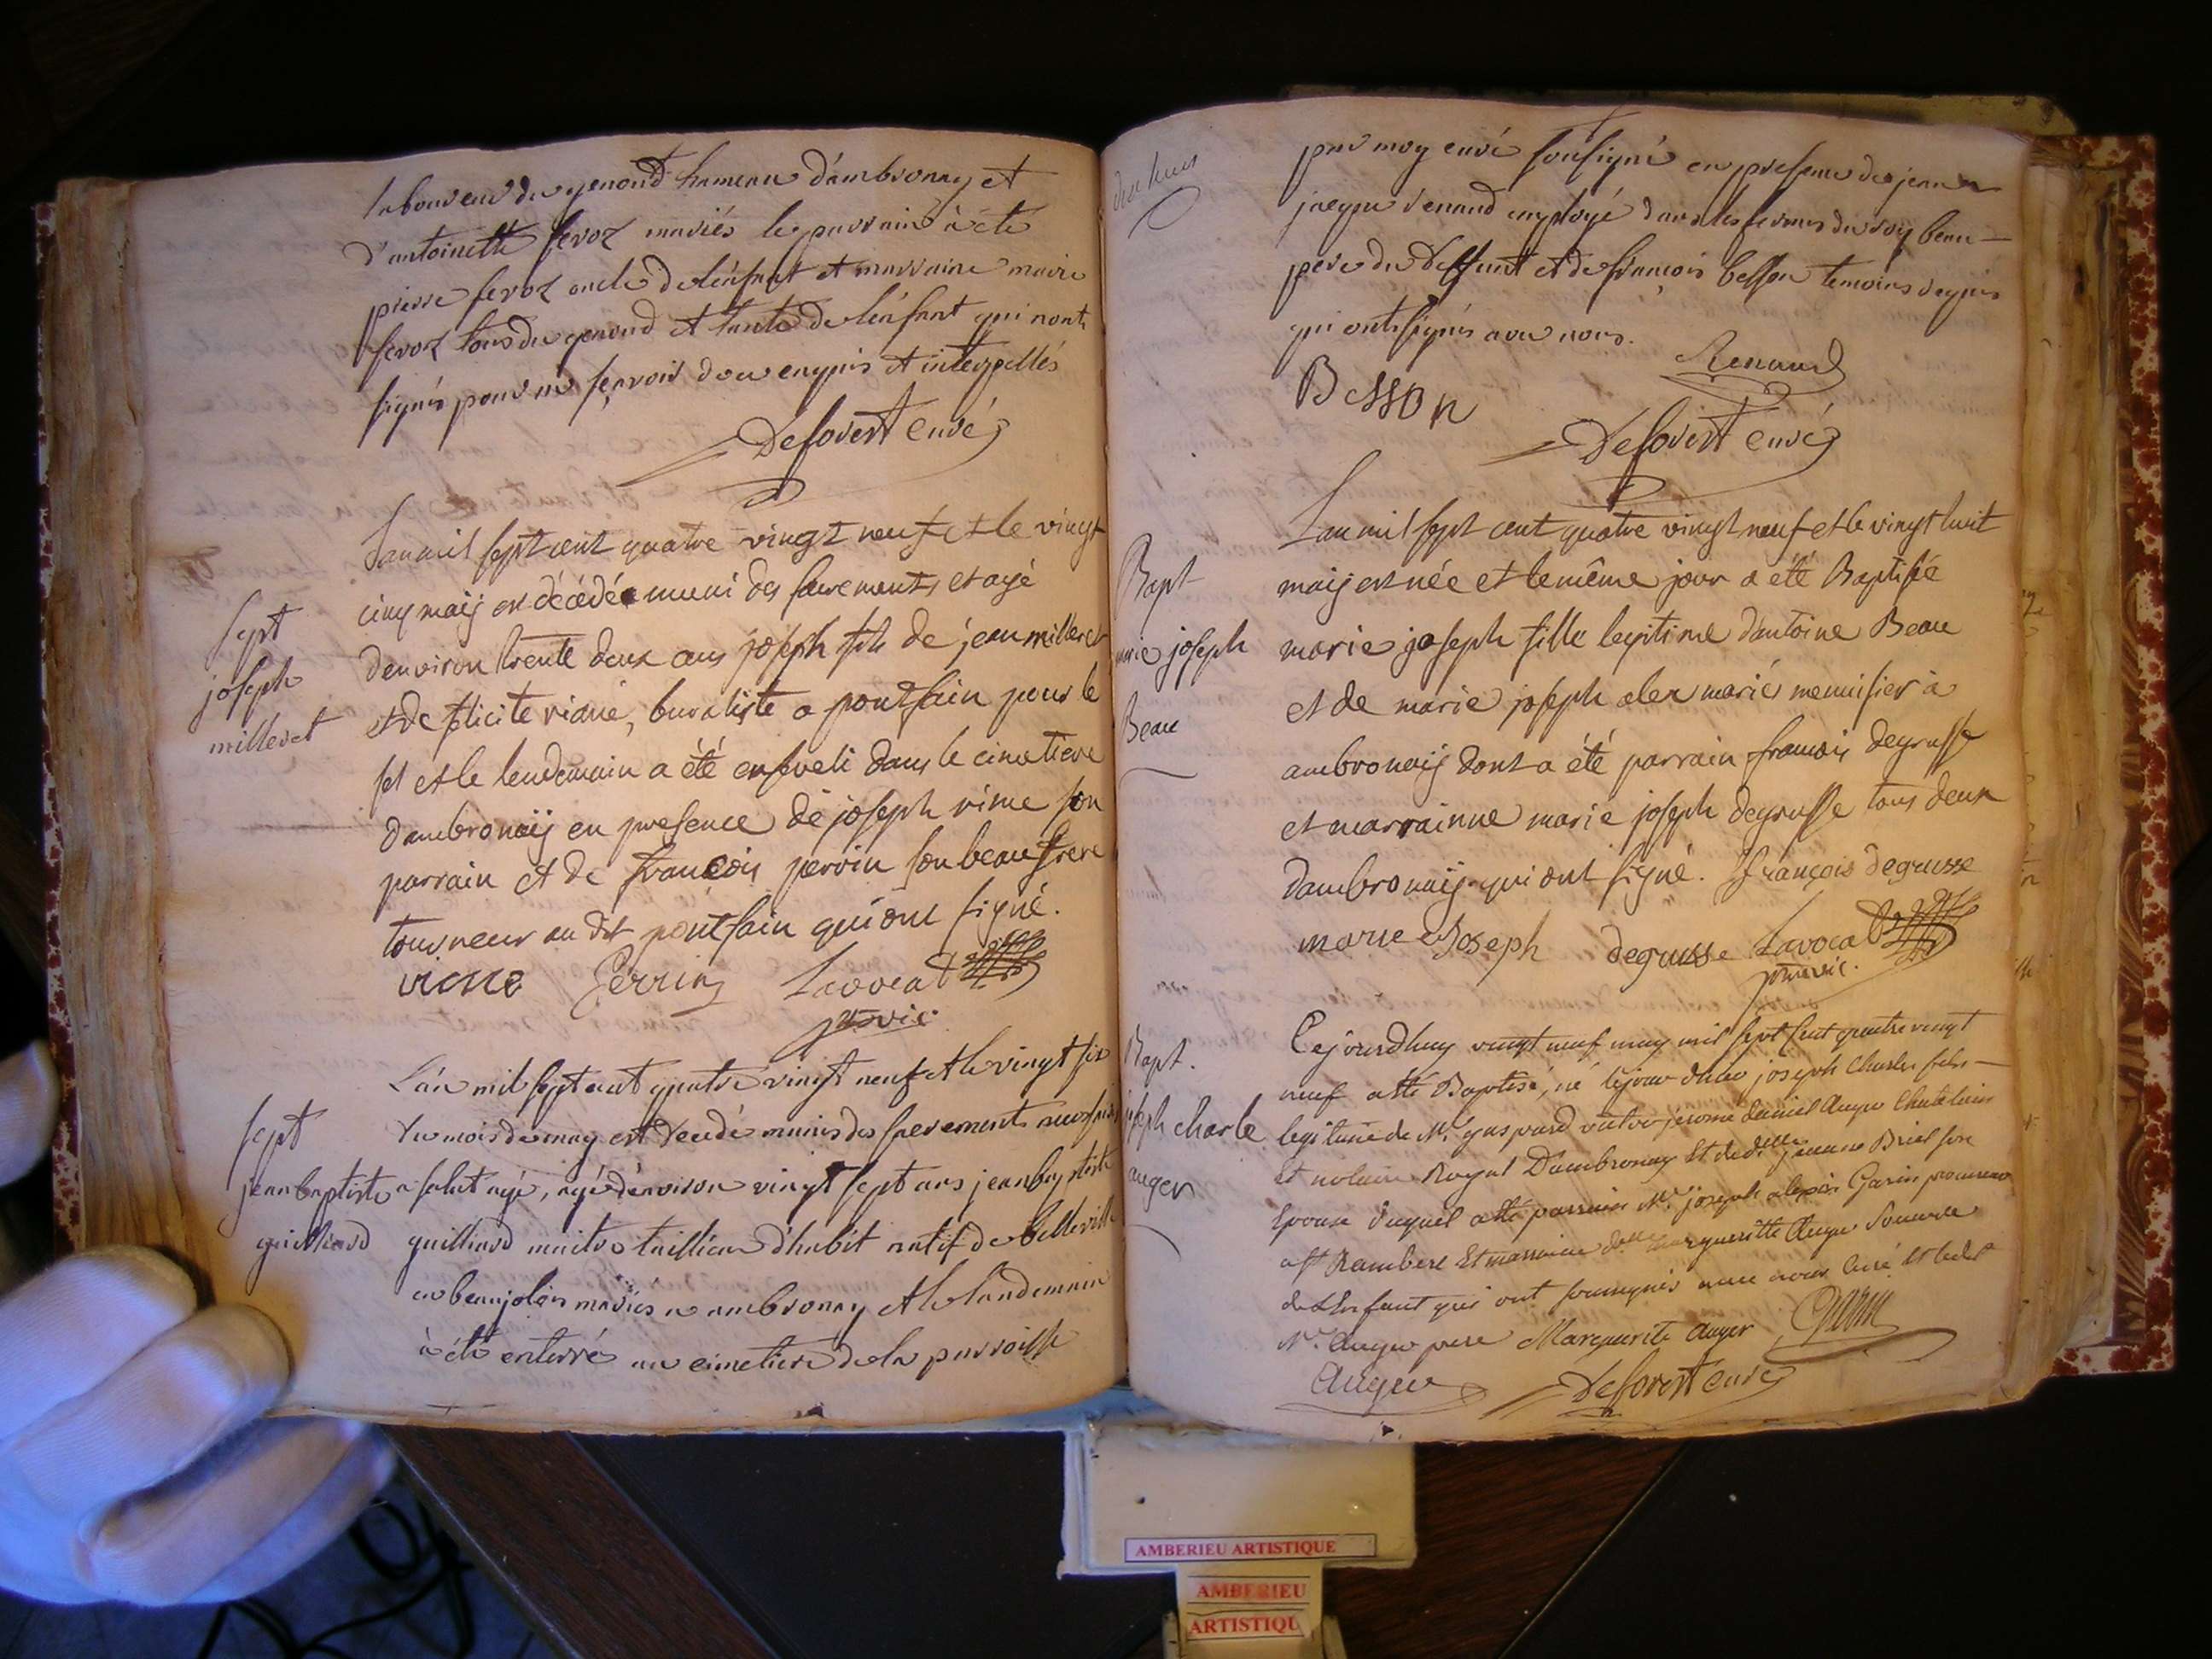 laboureur du genoud hameau d'ambronay et
d'antoinette feroz mariés le parrain a été
pierre feroz oncle de lénfant et marraine marie
feroz tous du genoud et tante de lénfant qui nont
signés pour ne sçavoir de ce enquis et interpellés
Deforest curé
Lan mil sept cent quatre vingt neuf et le vingt
cinq maij est décédé muni des sacrements et agé
denviron trente deux ans joseph fils de jean milleret
et de felicite viane, buraliste a pontdain pour le
sel et le lendemain a été enseveli dans le cimetiere
dambronaij en presence de joseph vime son
parrain et de francois perrin son beau frere
tourneur au dit pontdain qui ont signé.
Perrin Lavocat
pr vic
sept
joseph
milleret
L'an mil sept cent quatre vingt neuf et le vingt six
du mois de may est decedé munis des sacrements
a salut agé, agé d'environ vingt sept ans jean baptiste
guilliard maitre taillieur d'habit natif de belleville
en beaujolois mariés a ambronay et le landemain
à été enterré au cimetiere de la parroisse
sept
jean baptiste
guilliard
par moy curé soussigné en presence de jean
jacque renaud employé dans les fermes du roy beau-
pere du deffunt et de françois besson temoins requis
qui ont signés avec nous.
Renaud
Besson
Deforest curé
Lan mil sept cent quatre vingt neuf et le vingt huit
maij est née et le même jour a été Baptisée
marie joseph fille legitime d'antoine Beau
et de marie joseph alex marié menuisier à
ambronaij dont a été parrain francois degrusse
et marrainne marie joseph degrusse tous deux
dambronaij qui ont signé. françois degrusse
marie Joseph degrusse Lavocat
pr vic.
Bapt
marie joseph
Beau
Cejourdhuy vingt neuf may mil sept cent quatre vingt
neuf a été Baptisé, né le jour d'hier joseph Charles fils-
legitime de Mr gaspard victor jerome daniel Auger Chatelain
et notaire Royal D'ambronay et de delle jeanne Briel son
Epouse duquel a été parrain Mr joseph alexis Garin procureur
a St Rambert Et marraine delle margueritte Auger
de L'enfant qui ont soussignés avec nous Curé et ledit
Mr Auger pere Marguerite Auger Garin
Auger Deforest curé
Bapt.
joseph charle
auger
AMBERIEU ARTISTIQUE
AMBERIEU
ARTISTIQU